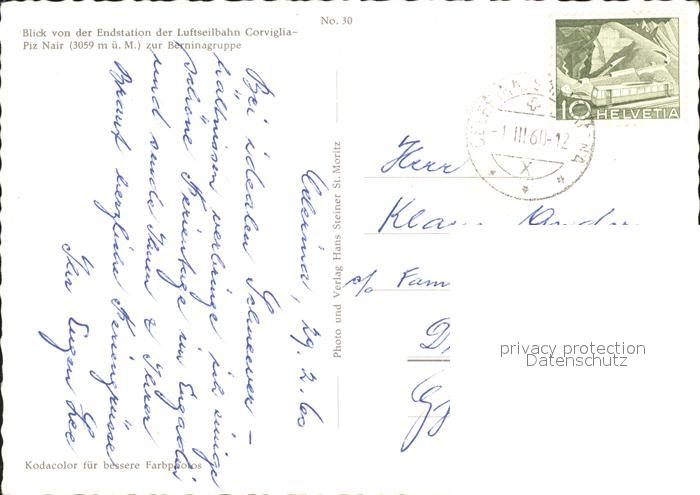 No. 30
Blick von der Endstation der Luftseilbahn Corviglia-
Piz Nair (3059 m ü. M.) zur Berninagruppe
Celerina, 29.2.60
Bei idealen Schneever-
hältnissen verbringe ich einige
schöne Ferientage im Engadin
und sende Ihnen & Ihrer
Braut herzliche Feriengrüsse
Ihr Eugen
Kodacolor für bessere Farbphotos
Photo und Verlag Hans Steiner St. Moritz
10 HELVETIA
-1.III.60-12
X
Herr
Klaus
c/o Fam
privacy protection
Datenschutz